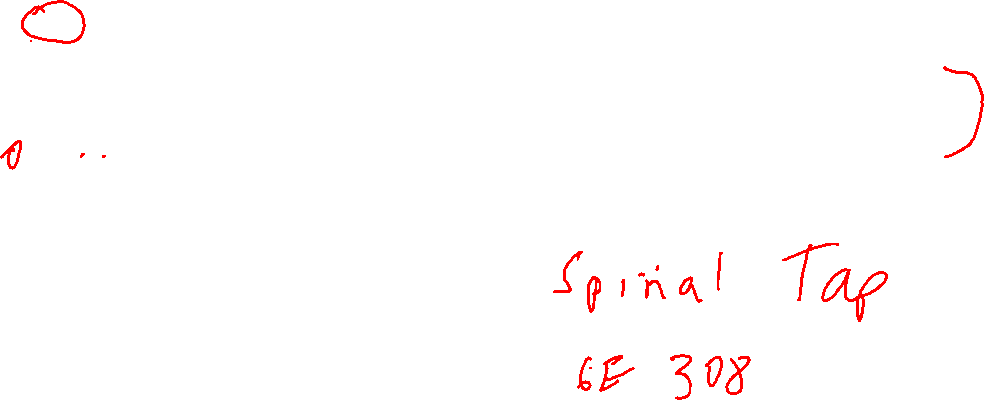 Spinal Tap
GE 308